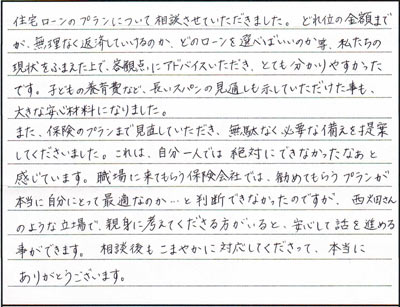 住宅ローンのプランについて相談させていただきました。どれ位の金額まで
が、無理なく返済していけるのか、どのローンを選べばいいのか等、私たちの
現状をふまえた上で、客観的にアドバイスいただき、とても分かりやすかった
です。子どもの養育費など、長いスパンの見通しも示していただけた事も、
大きな安心材料になりました。
また、保険のプランまで見直していただき、無駄なく必要な備えを提案
してくださいました。これは、自分一人では絶対にできなかったなぁと
感じています。職場に来てもらう保険会社では、勧めてもらうプランが
本当に自分にとって最適なのか…と判断できなかったのですが、西畑さん
のような立場で、親身に考えてくださる方がいると、安心して話を進める
事ができます。相談後もこまやかに対応してくださって、本当に
ありがとうございます。